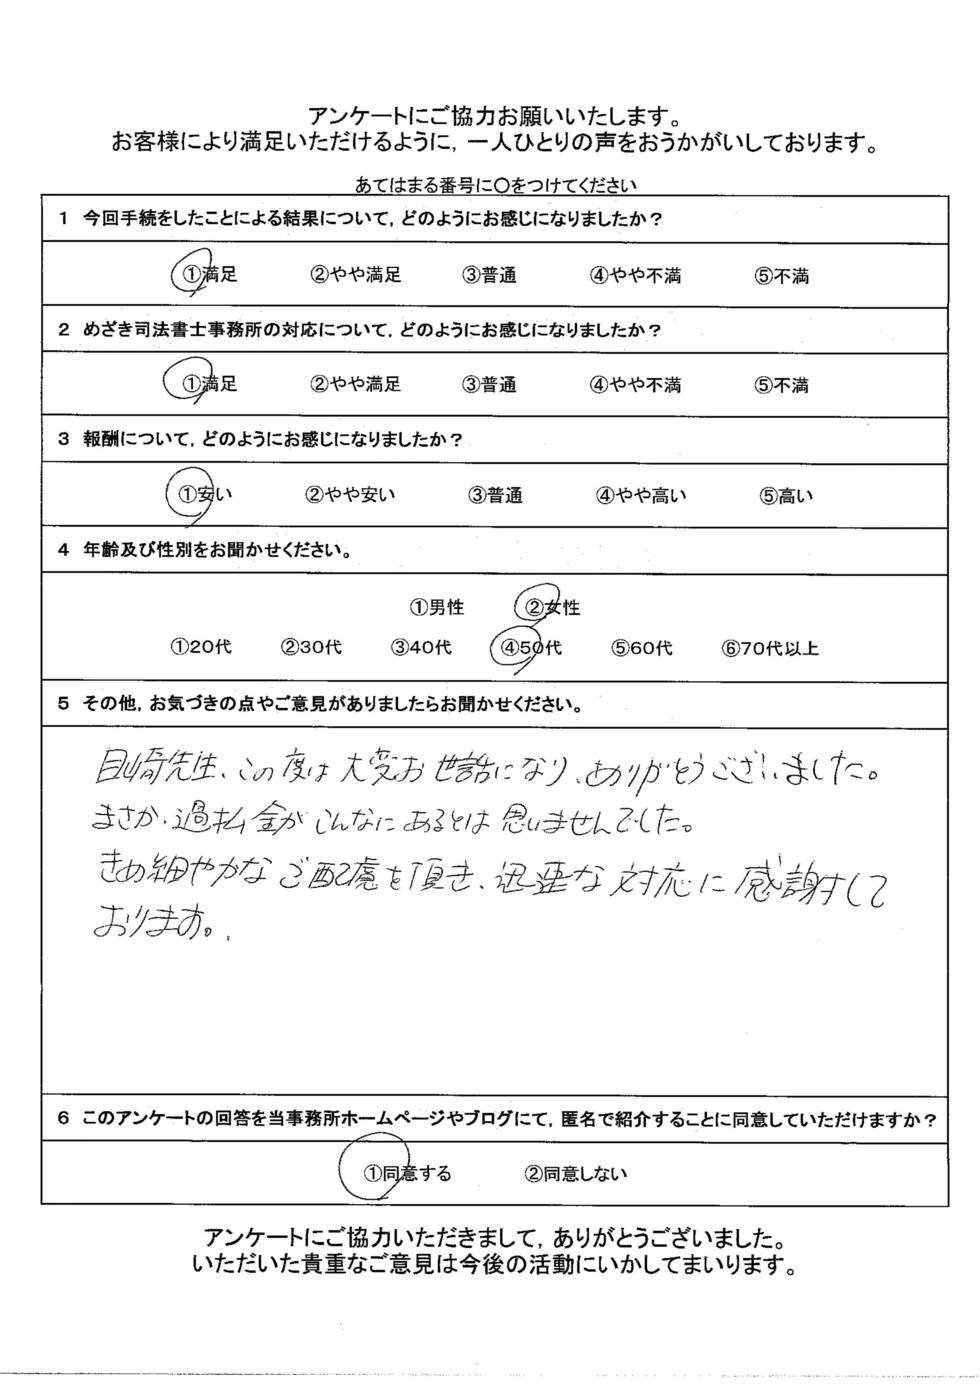 アンケートにご協力お願いいたします。
お客様により満足いただけるように，一人ひとりの声をおうかがいしております。
あてはまる番号に〇をつけてください
1 今回手続をしたことによる結果について，どのようにお感じになりましたか？
①満足 ②やや満足 ③普通 ④やや不満 ⑤不満
2 めざき司法書士事務所の対応について，どのようにお感じになりましたか？
①満足 ②やや満足 ③普通 ④やや不満 ⑤不満
3 報酬について，どのようにお感じになりましたか？
①安い ②やや安い ③普通 ④やや高い ⑤高い
4 年齢及び性別をお聞かせください。
①男性 ②女性
①20代 ②30代 ③40代 ④50代 ⑤60代 ⑥70代以上
5 その他，お気づきの点やご意見がありましたらお聞かせください。
目﨑先生、この度は大変お世話になり、ありがとうございました。
まさか、過払金がこんなにあるとは思いませんでした。
きめ細やかなご配慮を頂き、迅速な対応に感謝して
おります。
6 このアンケートの回答を当事務所ホームページやブログにて，匿名で紹介することに同意していただけますか？
①同意する ②同意しない
アンケートにご協力いただきまして，ありがとうございました。
いただいた貴重なご意見は今後の活動にいかしてまいります。